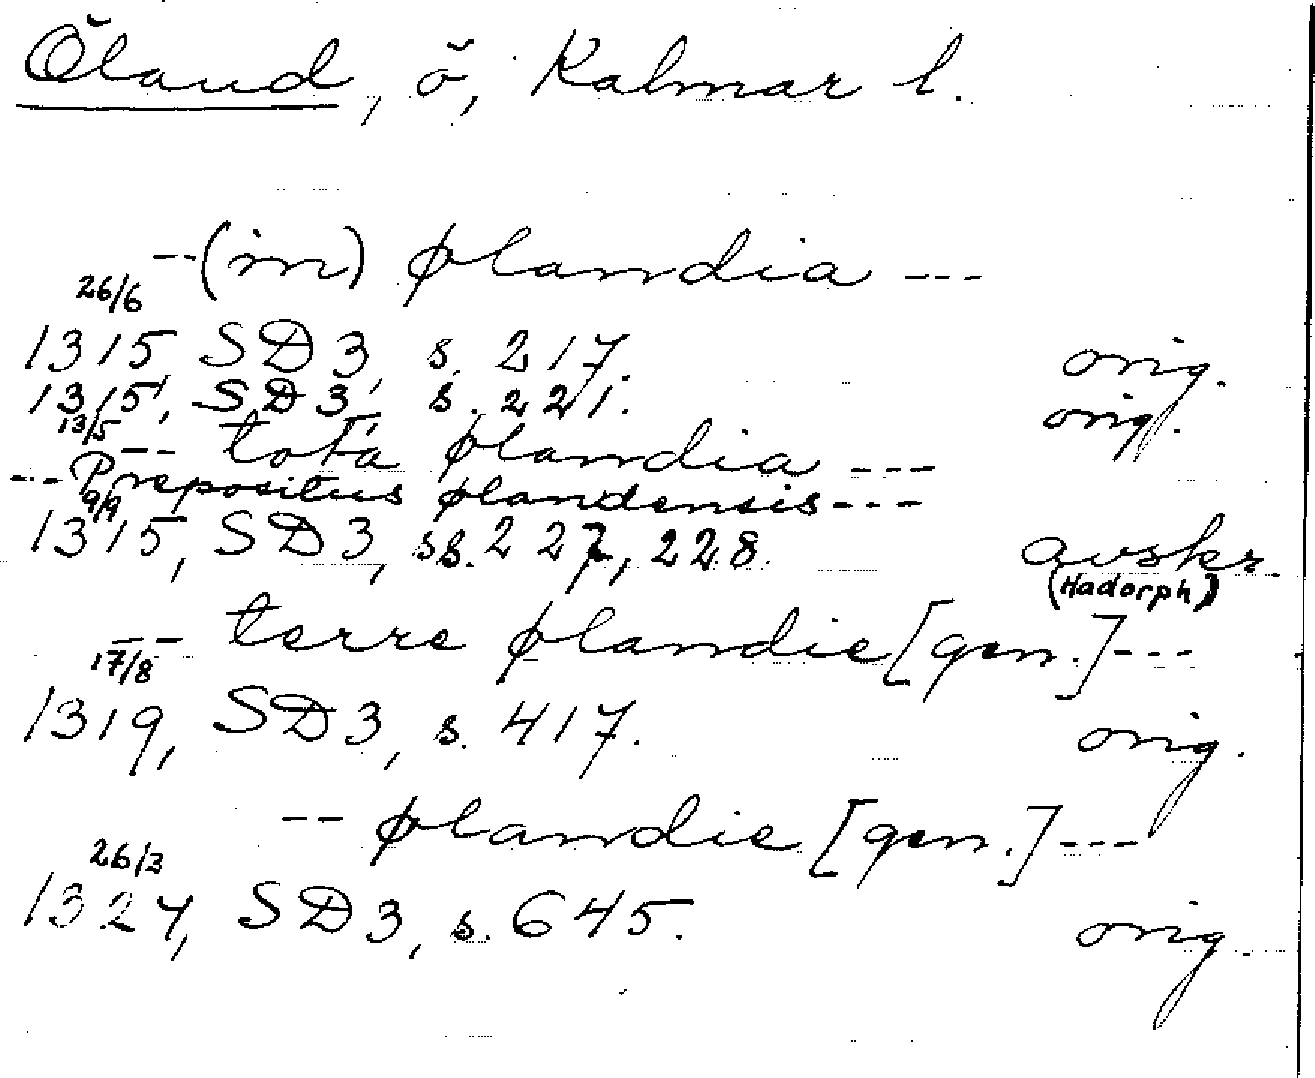 Öland, ö, Kalmar l.
--(in) ølandia ---
26/6
1315 SD3, s. 217. orig.
1315, SD3, s. 221. orig.
13/5
-- tota ølandia ---
--- Prepositus ølandensis ---
9/9
1315, SD3, ss. 227, 228. avskr.
(Hadorph)
-- terre ølandie [gen.] ---
17/8
1319, SD3, s. 417. orig.
-- ølandie [gen.] ---
26/3
1327, SD3, s. 645. orig